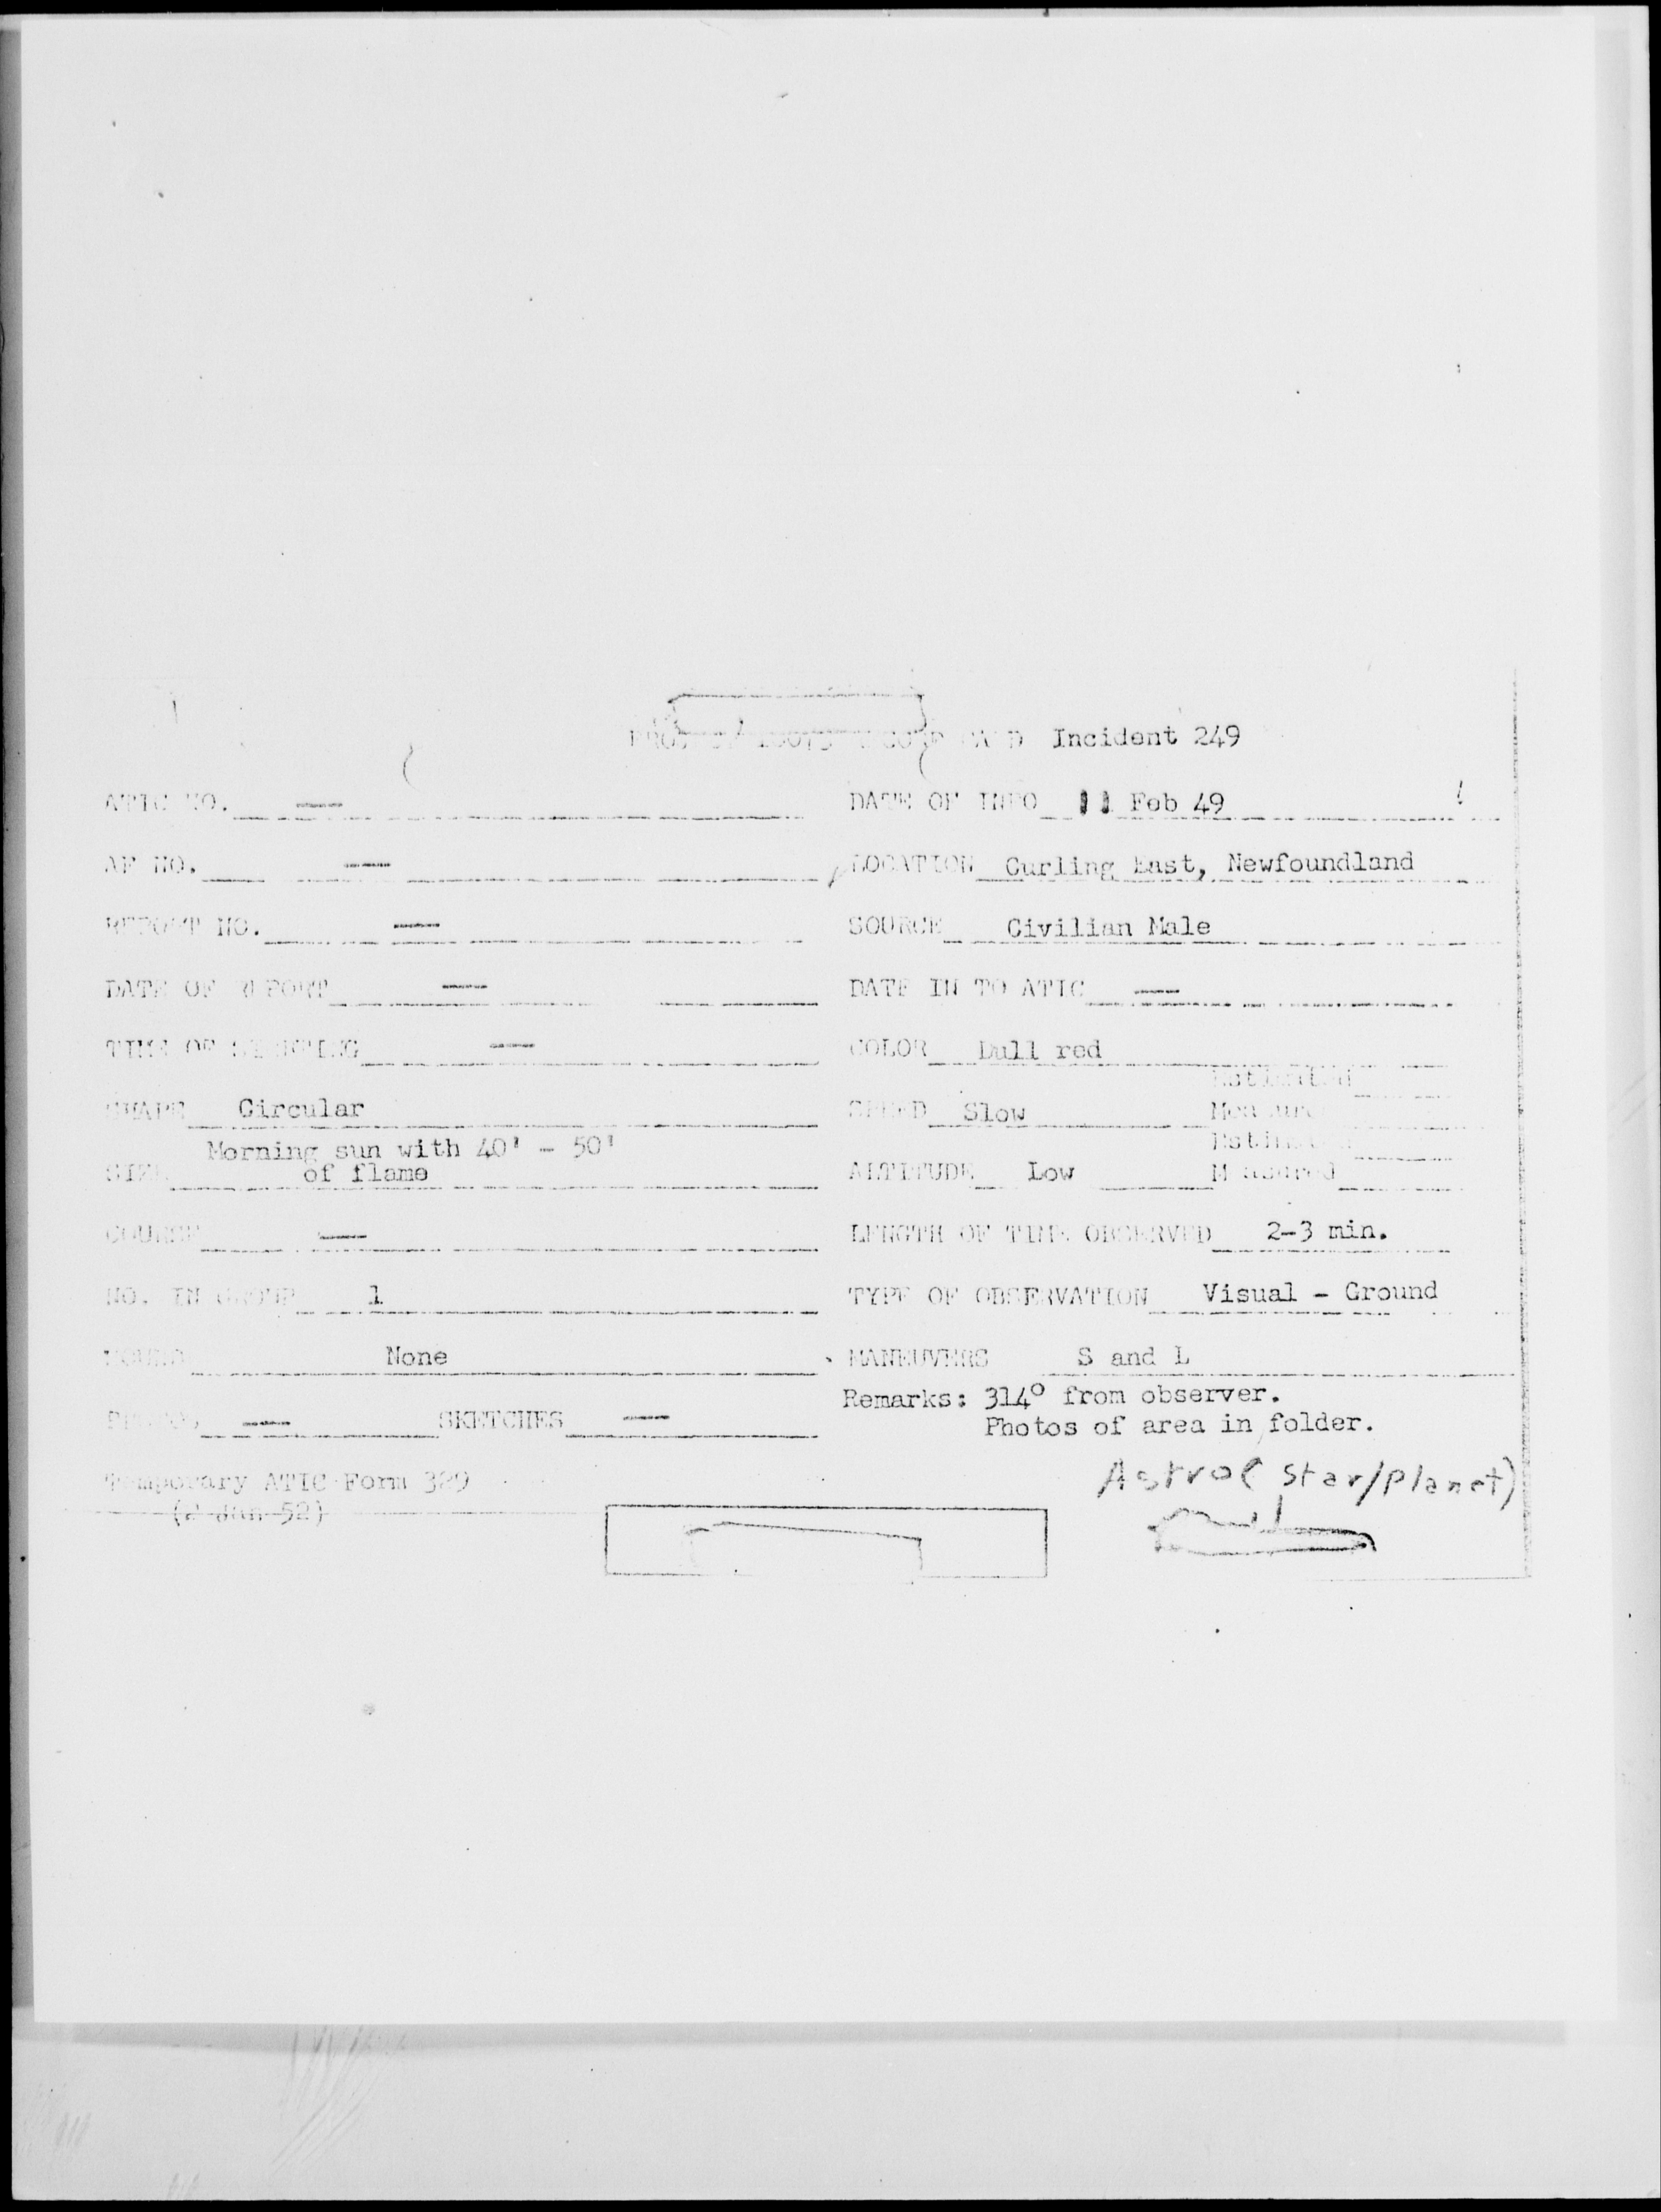 CARD Incident 249
ATIC NO. — DATE OF INFO 11 Feb 49
AF NO. — LOCATION Curling East, Newfoundland
REPORT NO. — SOURCE Civilian Male
DATE OF REPORT — DATE IN TO ATIC —
TIME OF SIGHTING — COLOR Dull red
Estimated
SHAPE Circular SPEED Slow Measured
Morning sun with 40' - 50' Estimated
SIZE of flame ALTITUDE Low Measured
COURSE — LENGTH OF TIME OBSERVED 2-3 min.
NO. IN GROUP 1 TYPE OF OBSERVATION Visual - Ground
SOUND None MANEUVERS S and L
Remarks: 314° from observer.
PHOTOS — SKETCHES — Photos of area in folder.
Temporary ATIC Form 329 Astro (Star/Planet)
(2 Jan 52)